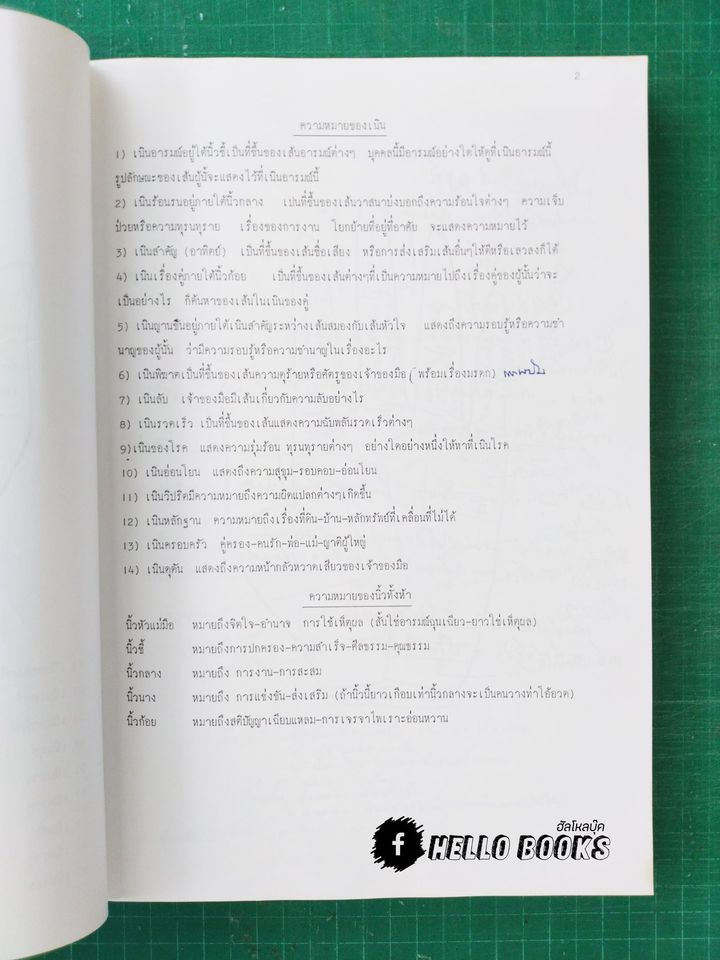 2
ความหมายของเนิน
1) เนินอารมณ์อยู่ใต้นิ้วชี้เป็นที่ขึ้นของเส้นอารมณ์ต่างๆ บุคคลนี้มีอารมณ์อย่างใดให้ดูที่เนินอารมณ์นี้
รูปลักษณะของเส้นผู้นี้จะแสดงไว้ที่เนินอารมณ์นี้
2) เนินร้อนรนอยู่ภายใต้นิ้วกลาง เปนที่ขึ้นของเส้นวาสนาบ่งบอกถึงความร้อนใจต่างๆ ความเจ็บ
ป่วยหรือความทุรนทุราย เรื่องของการงาน โยกย้ายที่อยู่ที่อาศัย จะแสดงความหมายไว้
3) เนินสำคัญ (อาทิตย์) เป็นที่ขึ้นของเส้นชื่อเสียง หรือการส่งเสริมเส้นอื่นๆให้ดีหรือเลวลงก็ได้
4) เนินเรื่องคู่ภายใต้นิ้วก้อย เป็นที่ขึ้นของเส้นต่างๆที่เป็นความหมายไปถึงเรื่องคู่ของผู้นั้นว่าจะ
เป็นอย่างไร ก็ค้นหาของเส้นในเนินของคู่
5) เนินญานขึ้นอยู่ภายใต้เนินสำคัญระหว่างเส้นสมองกับเส้นหัวใจ แสดงถึงความรอบรู้หรือความชำ
นาญของผู้นั้น ว่ามีความรอบรู้หรือความชำนาญในเรื่องอะไร
6) เนินพิฆาตเป็นที่ขึ้นของเส้นความดุร้ายหรือศัตรูของเจ้าของมือ (พร้อมเรื่องมรดก)
7) เนินลับ เจ้าของมือมีเส้นเกี่ยวกับความลับอย่างไร
8) เนินรวดเร็ว เป็นที่ขึ้นของเส้นแสดงความฉับพลันรวดเร็วต่างๆ
9) เนินของโรค แสดงความรุ่มร้อน ทุรนทุรายต่างๆ อย่างใดอย่างหนึ่งให้หาที่เนินโรค
10) เนินอ่อนโยน แสดงถึงความสุขุม-รอบคอบ-อ่อนโยน
11) เนินวิปริตมีความหมายถึงความผิดแปลกต่างๆเกิดขึ้น
12) เนินหลักฐาน ความหมายถึงเรื่องที่ดิน-บ้าน-หลักทรัพย์ที่เคลื่อนที่ไม่ได้
13) เนินครอบครัว คู่ครอง-คนรัก-พ่อ-แม่-ญาติผู้ใหญ่
14) เนินดุดัน แสดงถึงความหน้ากลัวหวาดเสียวของเจ้าของมือ
ความหมายของนิ้วทั้งห้า
นิ้วหัวแม่มือ หมายถึงจิตใจ-อำนาจ การใช้เหตุผล (สั้นใช้อารมณ์ฉุนเฉียว-ยาวใช้เหตุผล)
นิ้วชี้ หมายถึงการปกครอง-ความสำเร็จ-ศีลธรรม-คุณธรรม
นิ้วกลาง หมายถึง การงาน-การสะสม
นิ้วนาง หมายถึง การแข่งขัน-ส่งเสริม (ถ้านิ้วนี้ยาวเกือบเท่านิ้วกลางจะเป็นคนวางท่าโอ้อวด)
นิ้วก้อย หมายถึงสติปัญญาเฉียบแหลม-การเจรจาไพเราะอ่อนหวาน
ฮัลโหลบุ๊ค
f HELLO BOOKS